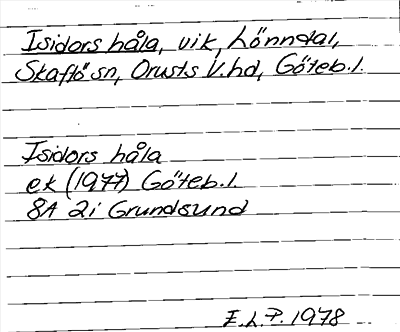 Isidors håla, vik, Lönndal,
Skaftö sn, Orusts V.hd, Göteb.l.
Isidors håla
ek (1977) Göteb.l.
8A 2i Grundsund
E.L.P. 1978